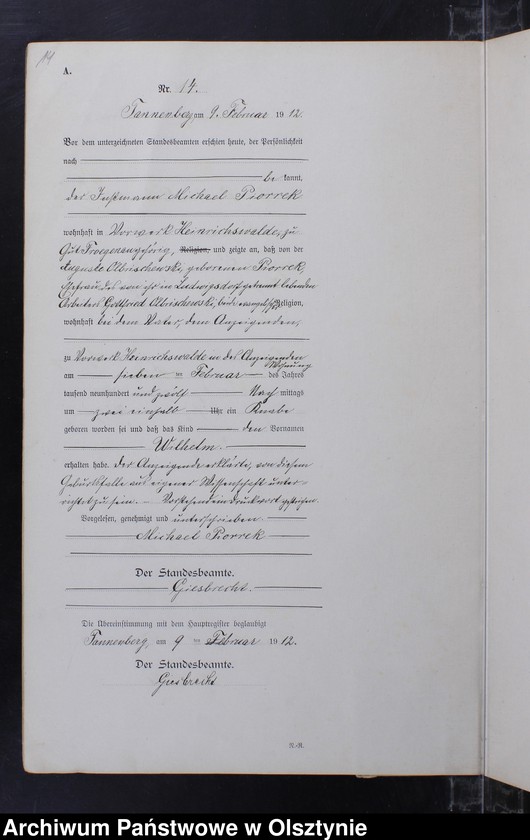 A.
Nr. 14.
Tannenberg, am 9. Februar 1912.
Vor dem unterzeichneten Standesbeamten erschien heute, der Persönlichkeit
nach
bekannt,
der Instmann Michael Piorrek
wohnhaft in Vorwerk Heinrichswalde, zu
Gut Froegenau gehörig, Religion, und zeigte an, daß von der
Auguste Olbrischewski, geborenen Piorrek,
Ehefrau des von ihr in Ludwigsdorf getrennt lebenden
Arbeiters Gottfried Olbrischewski, beide evangelischer Religion,
wohnhaft bei dem Vater, dem Anzeigenden,
zu Vorwerk Heinrichswalde in des Anzeigenden
Wohnung
am sieben ten Februar des Jahres
tausend neunhundert und zwölf Nachmittags
um zwei einhalb Uhr ein Knabe
geboren worden sei und daß das Kind den Vornamen
Wilhelm.
erhalten habe. Der Anzeigende erklärte, von diesem
Geburtsfalle aus eigener Wissenschaft unter-
richtet zu sein. – Vorstehend ein Druckwort gestrichen.
Vorgelesen, genehmigt und unterschrieben
Michael Piorrek
Der Standesbeamte.
Giesbrecht.
Die Übereinstimmung mit dem Hauptregister beglaubigt
Tannenberg, am 9 ten Februar 1912.
Der Standesbeamte.
Giesbrecht
N.-R.
Archiwum Państwowe w Olsztynie